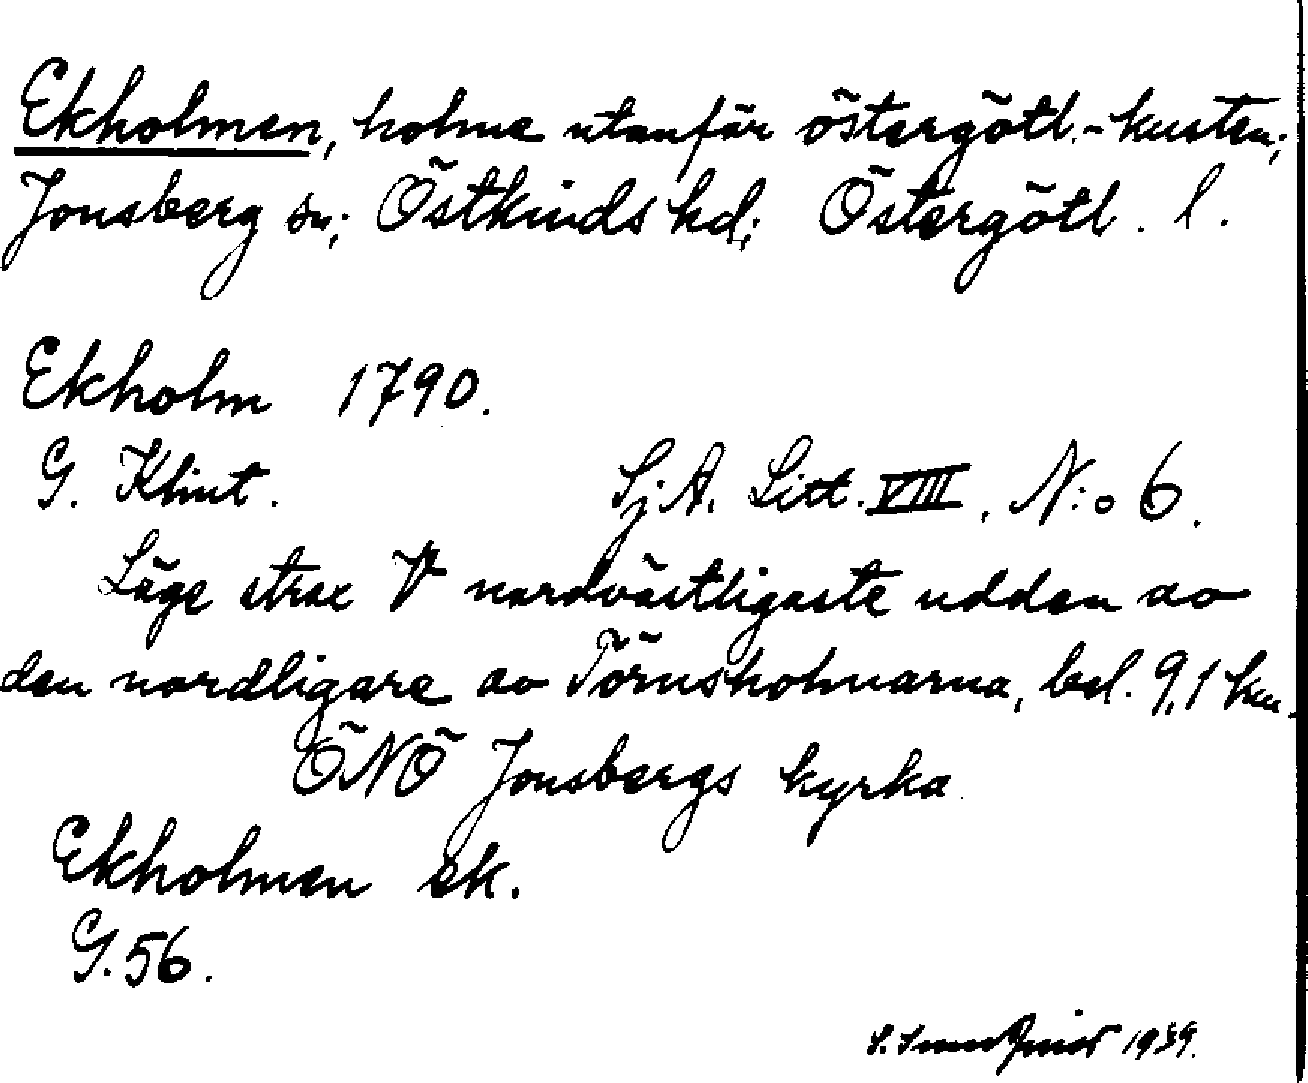 Ekholmen, holme utanför östergötl.-kusten;
Jonsberg sn; Östkinds hd; Östergötl. l.
Ekholm 1790.
G. Klint. Sj.A. Litt. VIII. N:o 6.
Läge strax V nordvästligaste udden av
den nordligare av Törnsholmarna, bel. 9,1 km.
ÖNÖ Jonsbergs kyrka.
Ekholmen ek.
G. 56.
S. 1939.